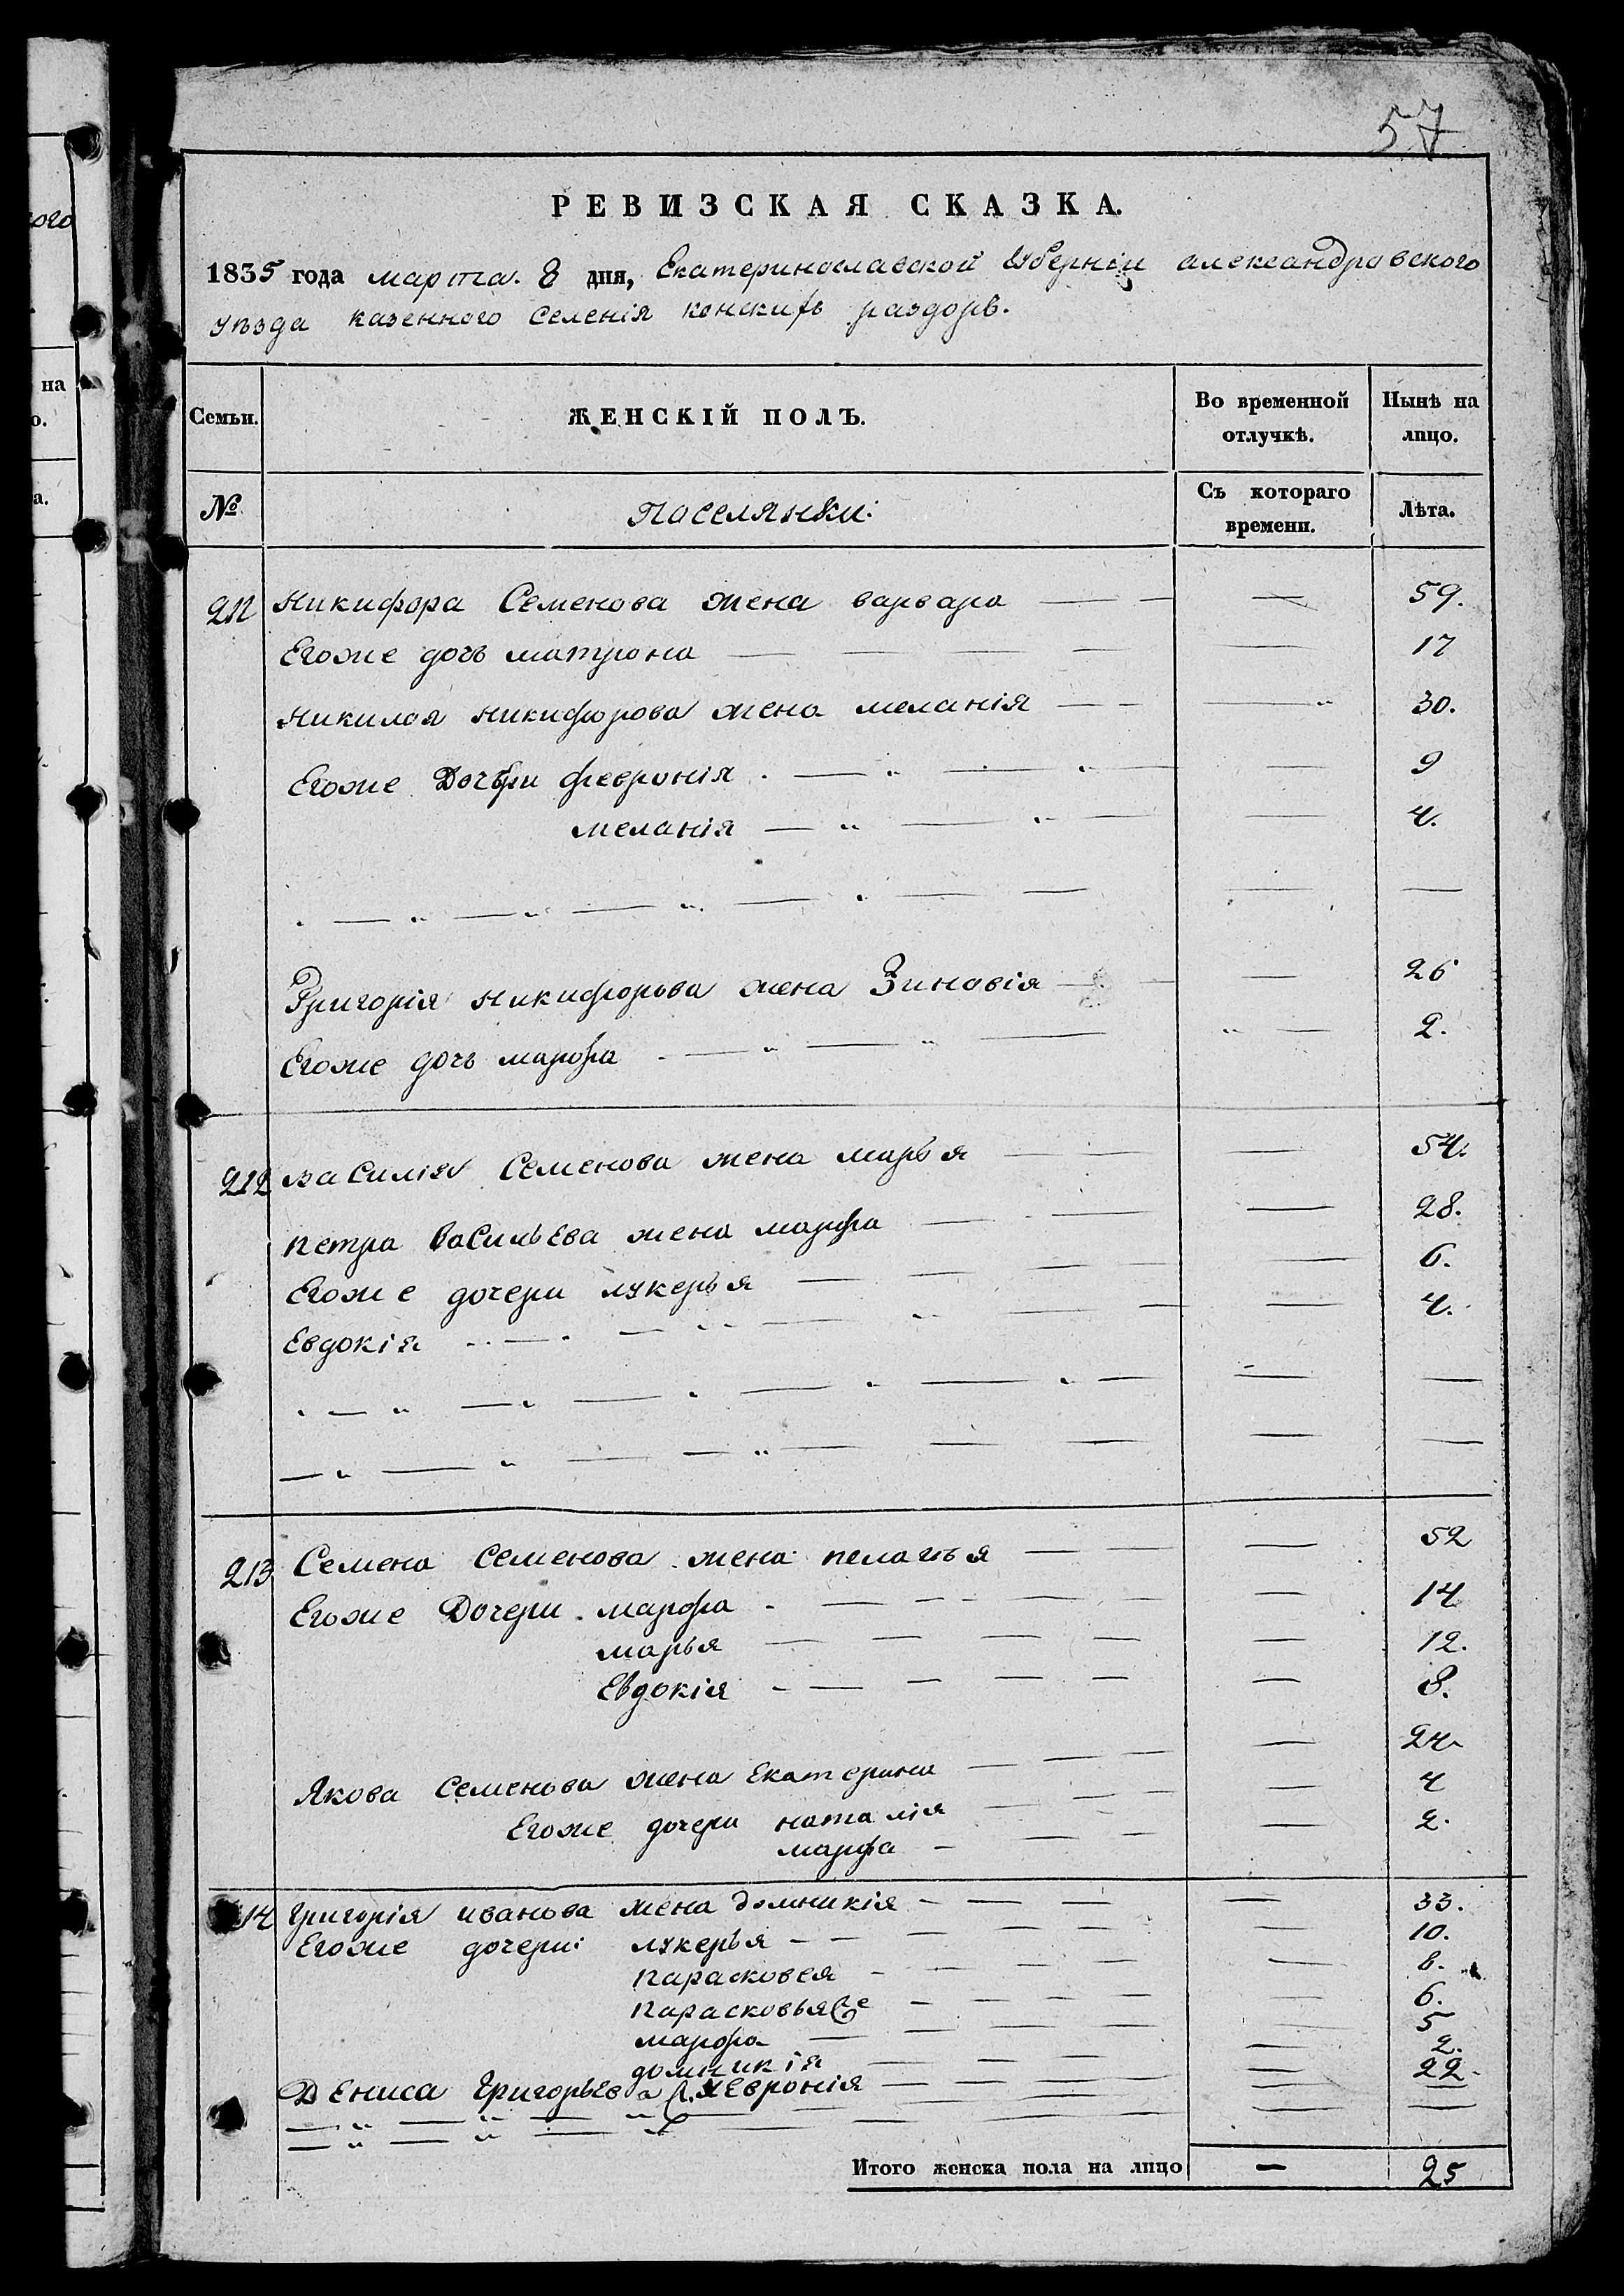 ого
на
о.
а.
57
РЕВИЗСКАЯ СКАЗКА.
1835 года марта. 8 дня, Екатеринославской Губерніи александровского
уѣзда казенного селенія конскихъ раздоръ.
Семьи. ЖЕНСКІЙ ПОЛЪ. Во временной отлучкѣ. Нынѣ на лицо.
№ Поселянки: Съ котораго времени. Лѣта.
211 Никифора Семенова жена варвара — — — 59.
Егоже дочь матрона — — — — — 17
Николая Никифорова жена меланія — — — 30.
Егоже Дочери феврониія — — — — 9
меланія — — — — 4.
— — — — — — — —
Григорія Никифорова жена Зиновія — — — 26
Егоже дочь марфа — — — — 2.
212 Василія Семенова жена марья — — — 54.
петра Васильева жена марфа — — — 28.
Егоже дочери лукерья — — — — — 6.
Евдокія — — — — — — 4.
— — — — — — — —
— — — — — — — —
213 Семена Семенова жена пелагья — — — 52
Егоже Дочери марфа — — — — — 14
марья — — — — — 12.
Евдокія — — — — — 8.
Якова Семенова жена Екатерина — — — — 24
Егоже дочери наталія — — — — 4
марфа — — — — 2.
14 Григорія иванова жена домникія — — — — 33.
Егоже дочери: лукерья — — — — 10.
парасковея — — — — — 8.
парасковья Же — — — — — 6.
марфа — — — — — 5
домникія — — — — — 2.
Дениса Григорьева ж. хевронія — — — — — 22.
— — — — — — — —
— — — — — — — —
Итого женска пола на лицо — 25